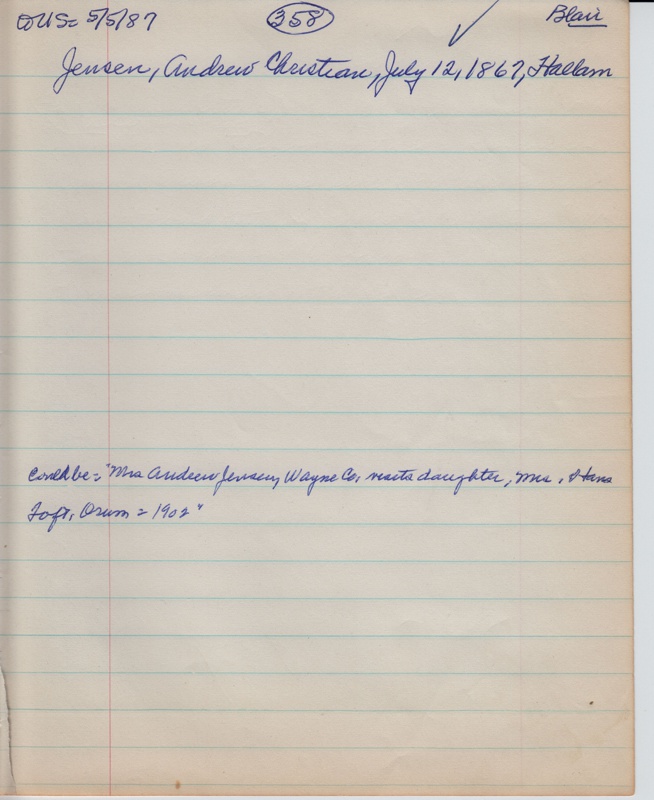 OUS = 5/5/87 358 Blair
Jensen, Andrew Christian, July 12, 1867, Hallam
Could be = "Mrs Andrew Jensen, Wayne Co. visits daughter, Mrs. Hans
Toft, Orum = 1902"